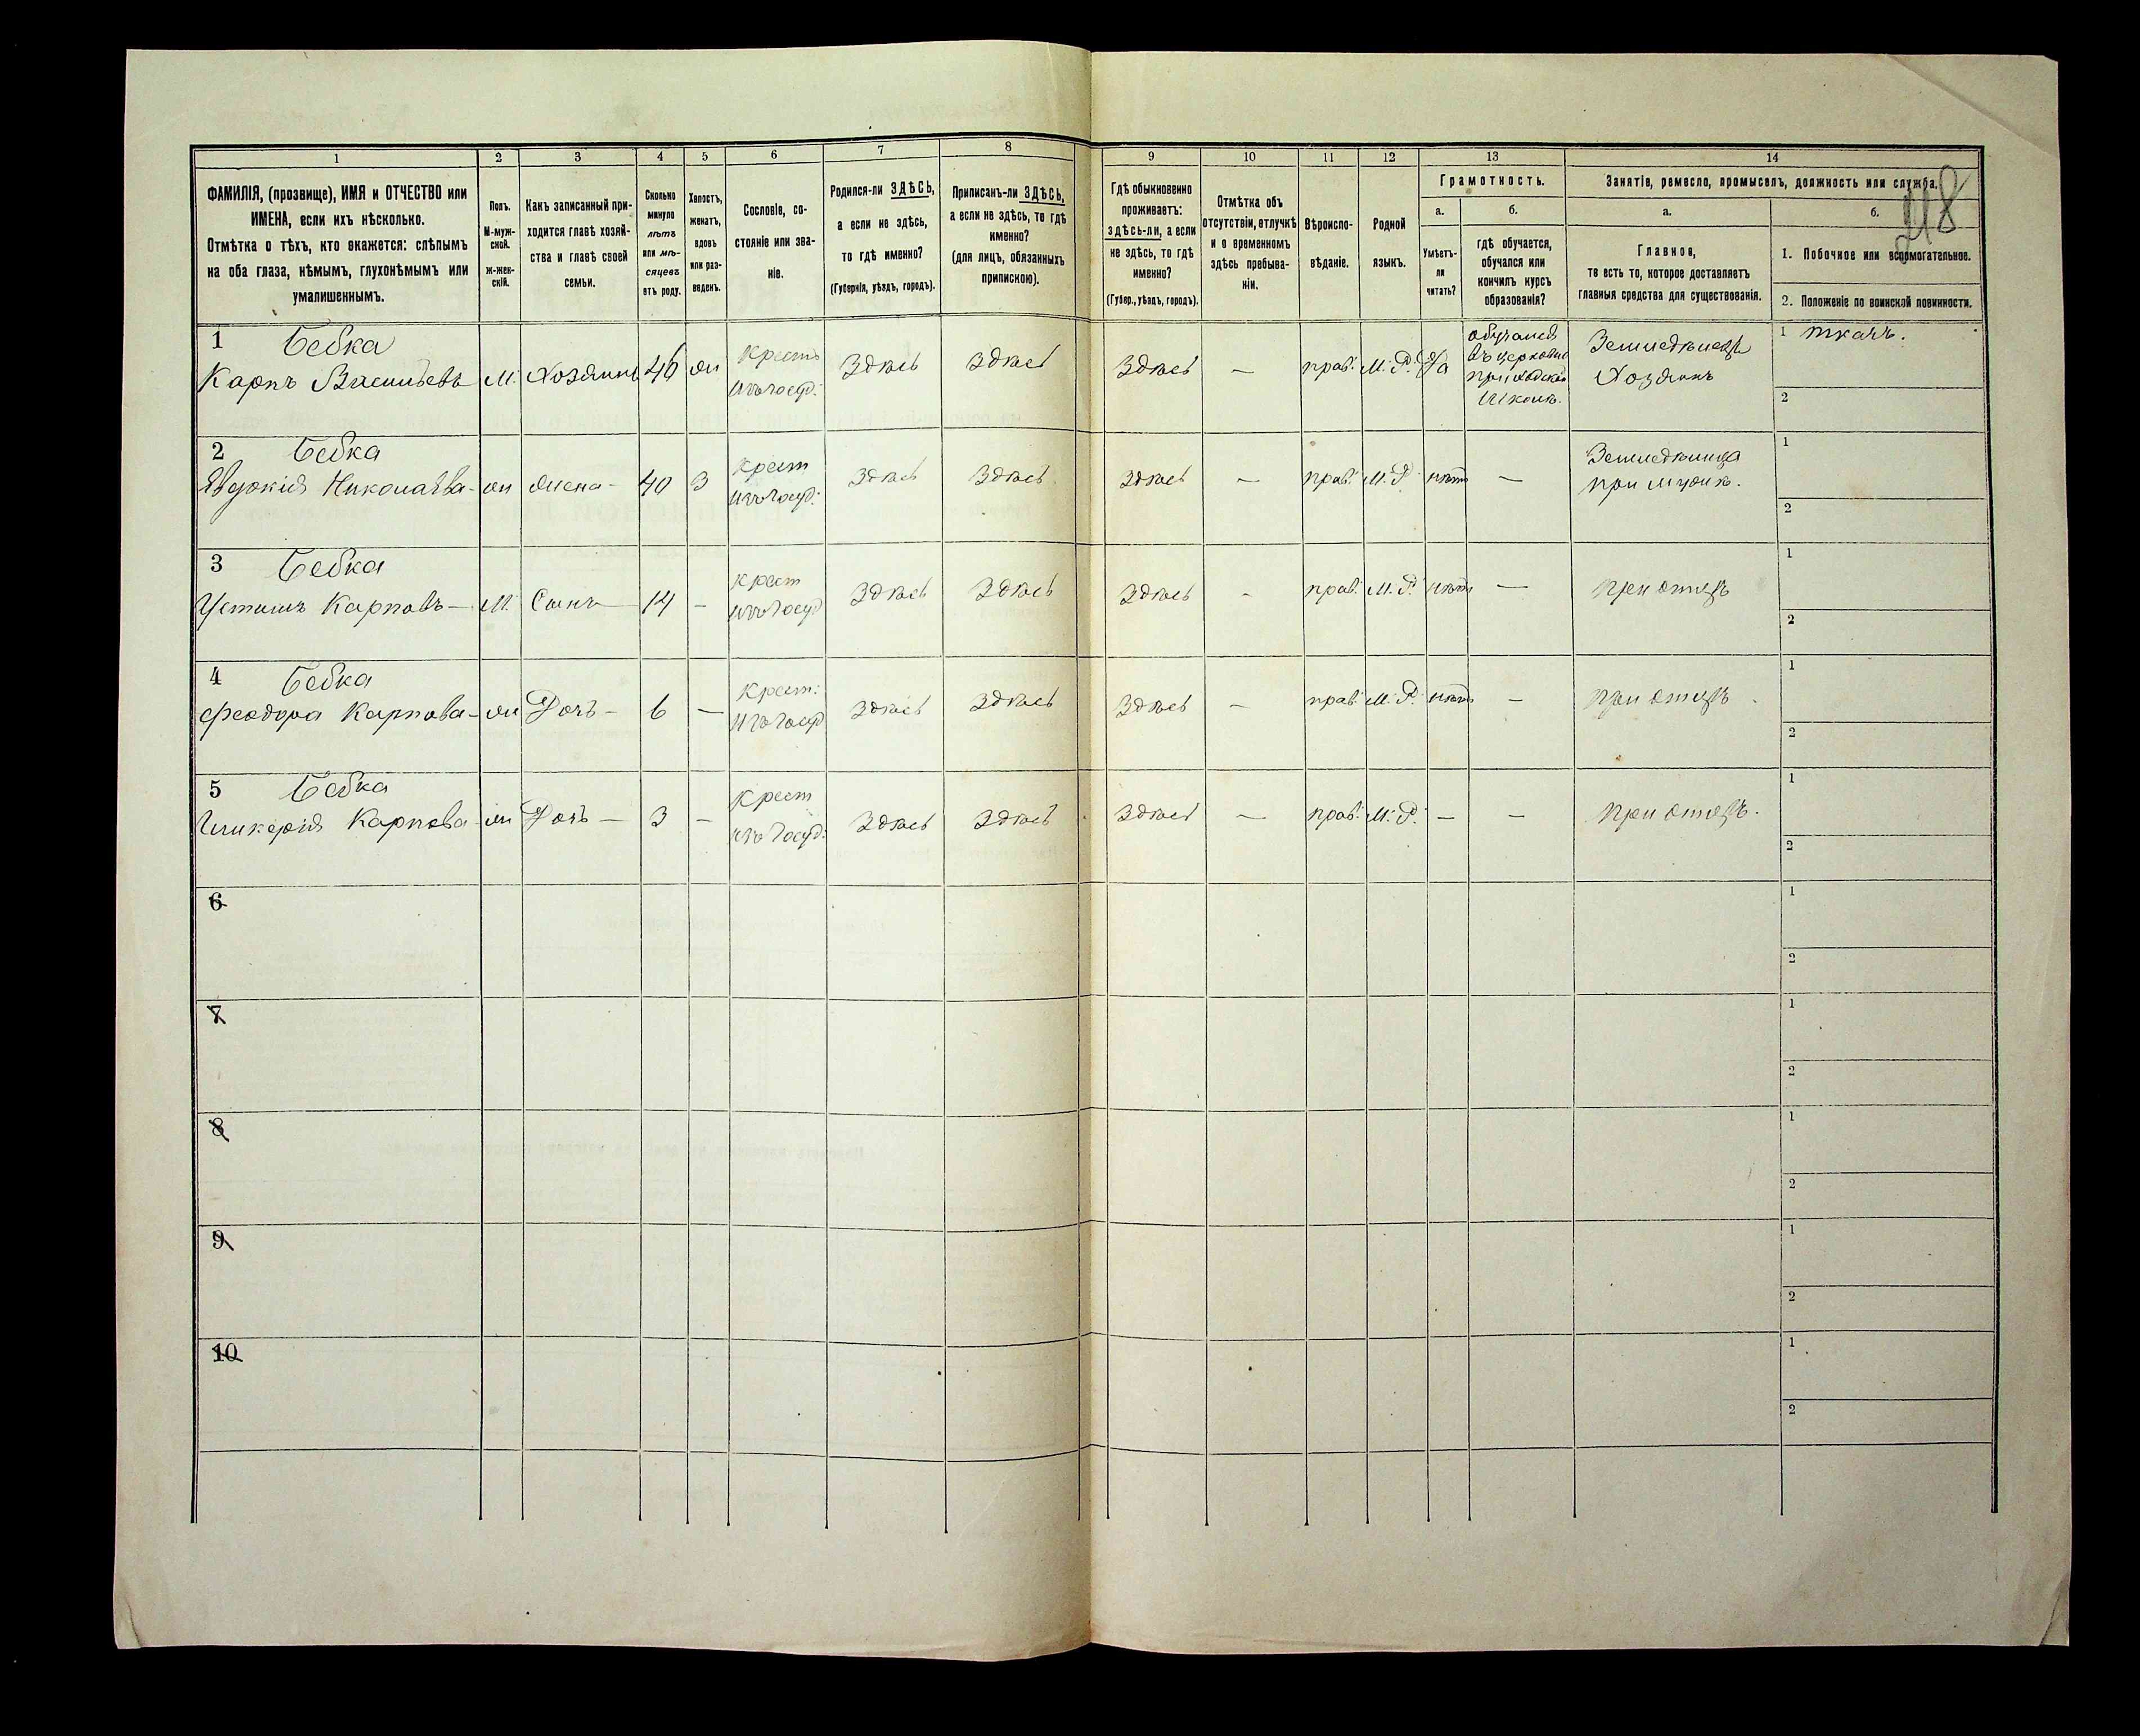 218
1 2 3 4 5 6 7 8 9 10 11 12 13 14
ФАМИЛІЯ, (прозвище), ИМЯ и ОТЧЕСТВО или
ИМЕНА, если ихъ нѣсколько.
Отмѣтка о тѣхъ, кто окажется: слѣпымъ
на оба глаза, нѣмымъ, глухонѣмымъ или
умалишеннымъ.
Полъ.
М-муж-
ской.
ж-жен-
скій.
Какъ записанный при-
ходится главѣ хозяй-
ства и главѣ своей
семьи.
Сколько
минуло
лѣтъ
или мѣ-
сяцевъ
отъ роду.
Холостъ,
женатъ,
вдовъ
или раз-
веденъ.
Сословіе, со-
стояніе или зва-
ніе.
Родился-ли ЗДѢСЬ,
а если не здѣсь,
то гдѣ именно?
(Губернія, уѣздъ, городъ).
Приписанъ-ли ЗДѢСЬ,
а если не здѣсь, то гдѣ
именно?
(для лицъ, обязанныхъ
припискою).
Гдѣ обыкновенно
проживаетъ:
здѣсь-ли, а если
не здѣсь, то гдѣ
именно?
(Губер., уѣздъ, городъ).
Отмѣтка объ
отсутствіи, отлучкѣ
и о временномъ
здѣсь пребыва-
ніи.
Вѣроиспо-
вѣданіе.
Родной
языкъ.
Грамотность.
а.
Умѣетъ-
ли
читать?
б.
гдѣ обучается,
обучался или
кончилъ курсъ
образованія?
Занятіе, ремесло, промыселъ, должность или служба.
а.
Главное,
то есть то, которое доставляетъ
главныя средства для существованія.
б.
1. Побочное или вспомогательное.
2. Положеніе по воинской повинности.
1 Бебка
Карпъ Васильевъ М. Хозяинъ 46 ж Крест. изъ госуд. Здѣсь Здѣсь Здѣсь — прав. М. Р. Да
обучался
въ церковно
приходской
школѣ.
Земледѣлецъ
Хозяинъ
1 ткачъ.
2
2 Бебка
Евдокія Николаева - ж Жена - 40 З Крест изъ госуд. Здѣсь Здѣсь Здѣсь — прав. М. Р. нѣтъ —
Земледѣлица
при мужѣ.
1
2
3 Бебка
Устимъ Карповъ — М. Сынъ — 14 - Крест изъ госуд Здѣсь Здѣсь Здѣсь - прав. М. Р. нѣтъ — при отцѣ
1
2
4 Бебка
Феодора Карпова - ж Дочь - 6 — Крест. изъ госуд Здѣсь Здѣсь Здѣсь — прав. М. Р. нѣтъ — при отцѣ
1
2
5 Бебка
Гликерія Карпова ж Дочь — 3 - Крест изъ госуд. Здѣсь Здѣсь Здѣсь — прав. М. Р. — — при отцѣ.
1
2
6
1
2
7
1
2
8
1
2
9
1
2
10
1
2